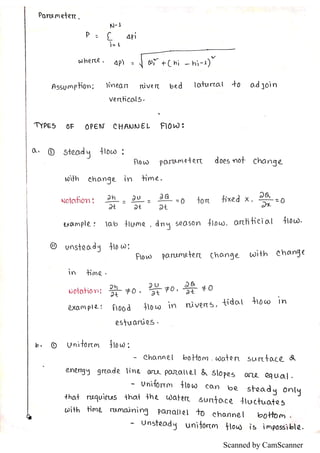 Parameter,
N-1
P = Σ ΔPi
i=1
where. ΔPi = √ bi² + (hi - hi-1)²
Assumption: linear river bed laturral to adjoin
verticals.
TYPES OF OPEN CHANNEL FLOW:
a. ① Steady flow :
Flow parameter does not change
with change in time.
Notation: ∂h/∂t = ∂U/∂t = ∂Q/∂t = 0 for fixed x. ∂Q/∂x = 0
example : lab flume, dry season flow. artificial flow.
② unsteady flow:
Flow parameter change with change
in time.
Notation: ∂h/∂t ≠ 0. ∂U/∂t ≠ 0. ∂Q/∂t ≠ 0
example: flood flow in rivers. tidal flow in
estuaries.
b. ① Uniform flow:
- channel bottom. water surface &
energy grade line are parallel & slopes are equal.
- Uniform flow can be steady only
that requires that the water surface fluctuates
with time remaining parallel to channel bottom.
- Unsteady uniform flow is impossible.
Scanned by CamScanner